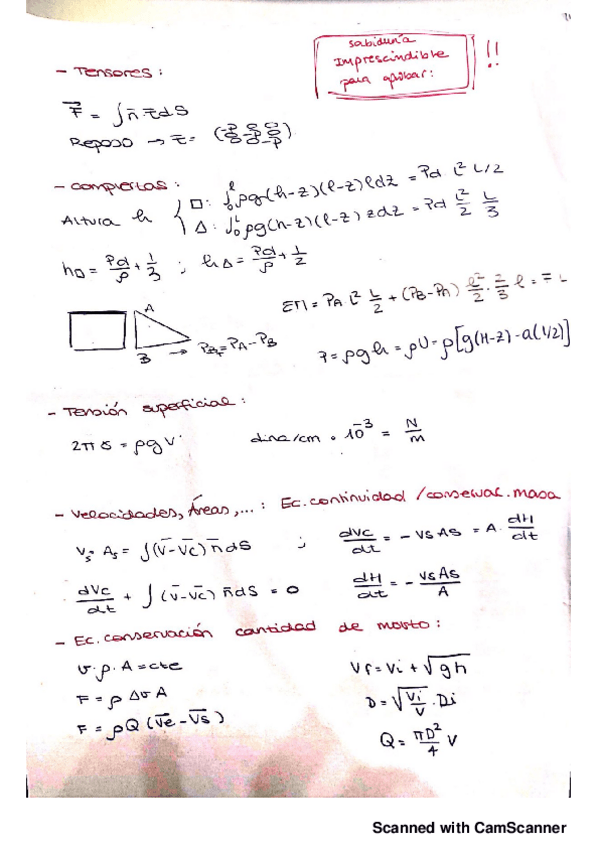 Sabiduría
Imprescindible
para aprobar: !!
- Tensores:
F̄ = ∫ n̄ τ̄ dS
Reposo → τ̄ = (-p 0 0 / 0 -p 0 / 0 0 -p)
- Compuertas:
Altura h { □: ∫₀ˡ ρg(h-z)(l-z)l dz = Pd L² L/2
Δ: ∫₀ᴸ ρg(h-z)(l-z) z dz = Pd L²/2 L/3
h□ = Pd/ρ + 1/3 ; hΔ = Pd/ρ + 1/2
ΣM = PA L² L/2 + (PB-PA) l²/2 · 2/3 l = F L
A
B → PBF = PA - PB
P = ρgh = ρU = ρ[g(H-z) - a(L/2)]
- Tensión superficial:
2π δ = ρ g V dina/cm · 10⁻³ = N/m
- Velocidades, Áreas,...: Ec. continuidad / conservac. masa
Vs · As = ∫(V̄-V̄c) n̄ dS ; dVc/dt = - Vs As = A · dH/dt
dVc/dt + ∫(V̄-V̄c) n̄ dS = 0 dH/dt = - Vs As/A
- Ec. conservación cantidad de mvto:
v · ρ · A = cte Vf = Vi + √gh
F = ρ Δv A D = √(Vi/V) · Di
F = ρQ (V̄e - V̄s) Q = πD²/4 V
Scanned with CamScanner